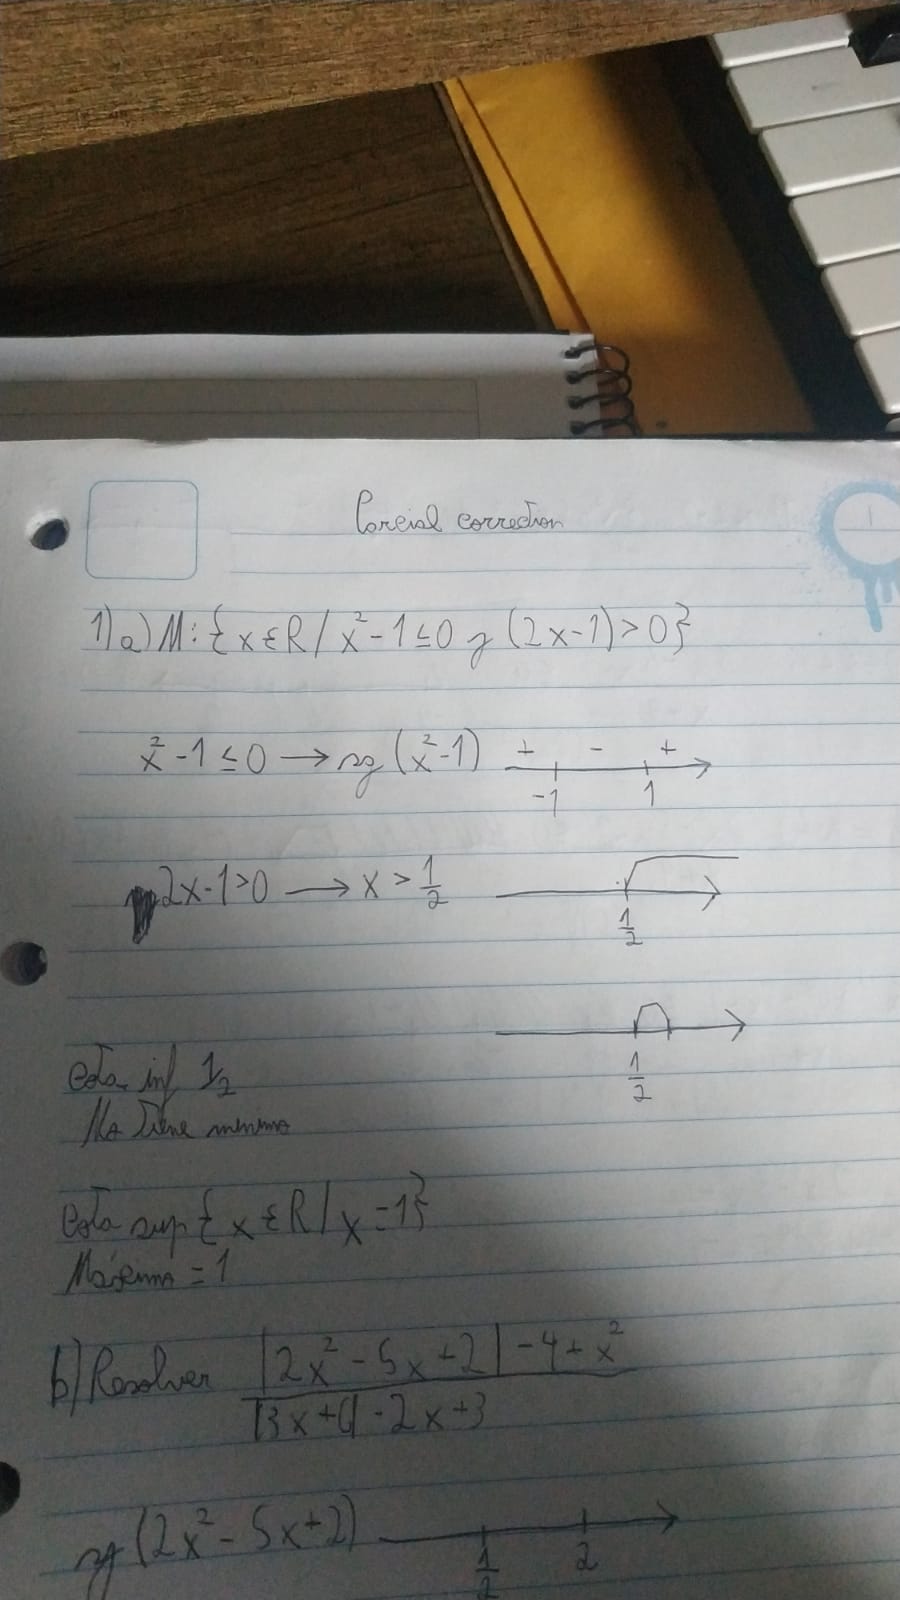 Parcial correction
1)a) M: {x∈R/x²-1≤0 y (2x-1)>0}
x²-1≤0 → sg (x²-1) + - +
-1 1
2x-1>0 → x > 1/2
1/2
1/2
cota inf 1/2
No tiene minimo
cota sup {x∈R/x=1}
Máximo = 1
b) Resolver |2x²-5x+2|-4+x²
|3x+6|-2x+3
sg (2x²-5x+2)
1/2 2